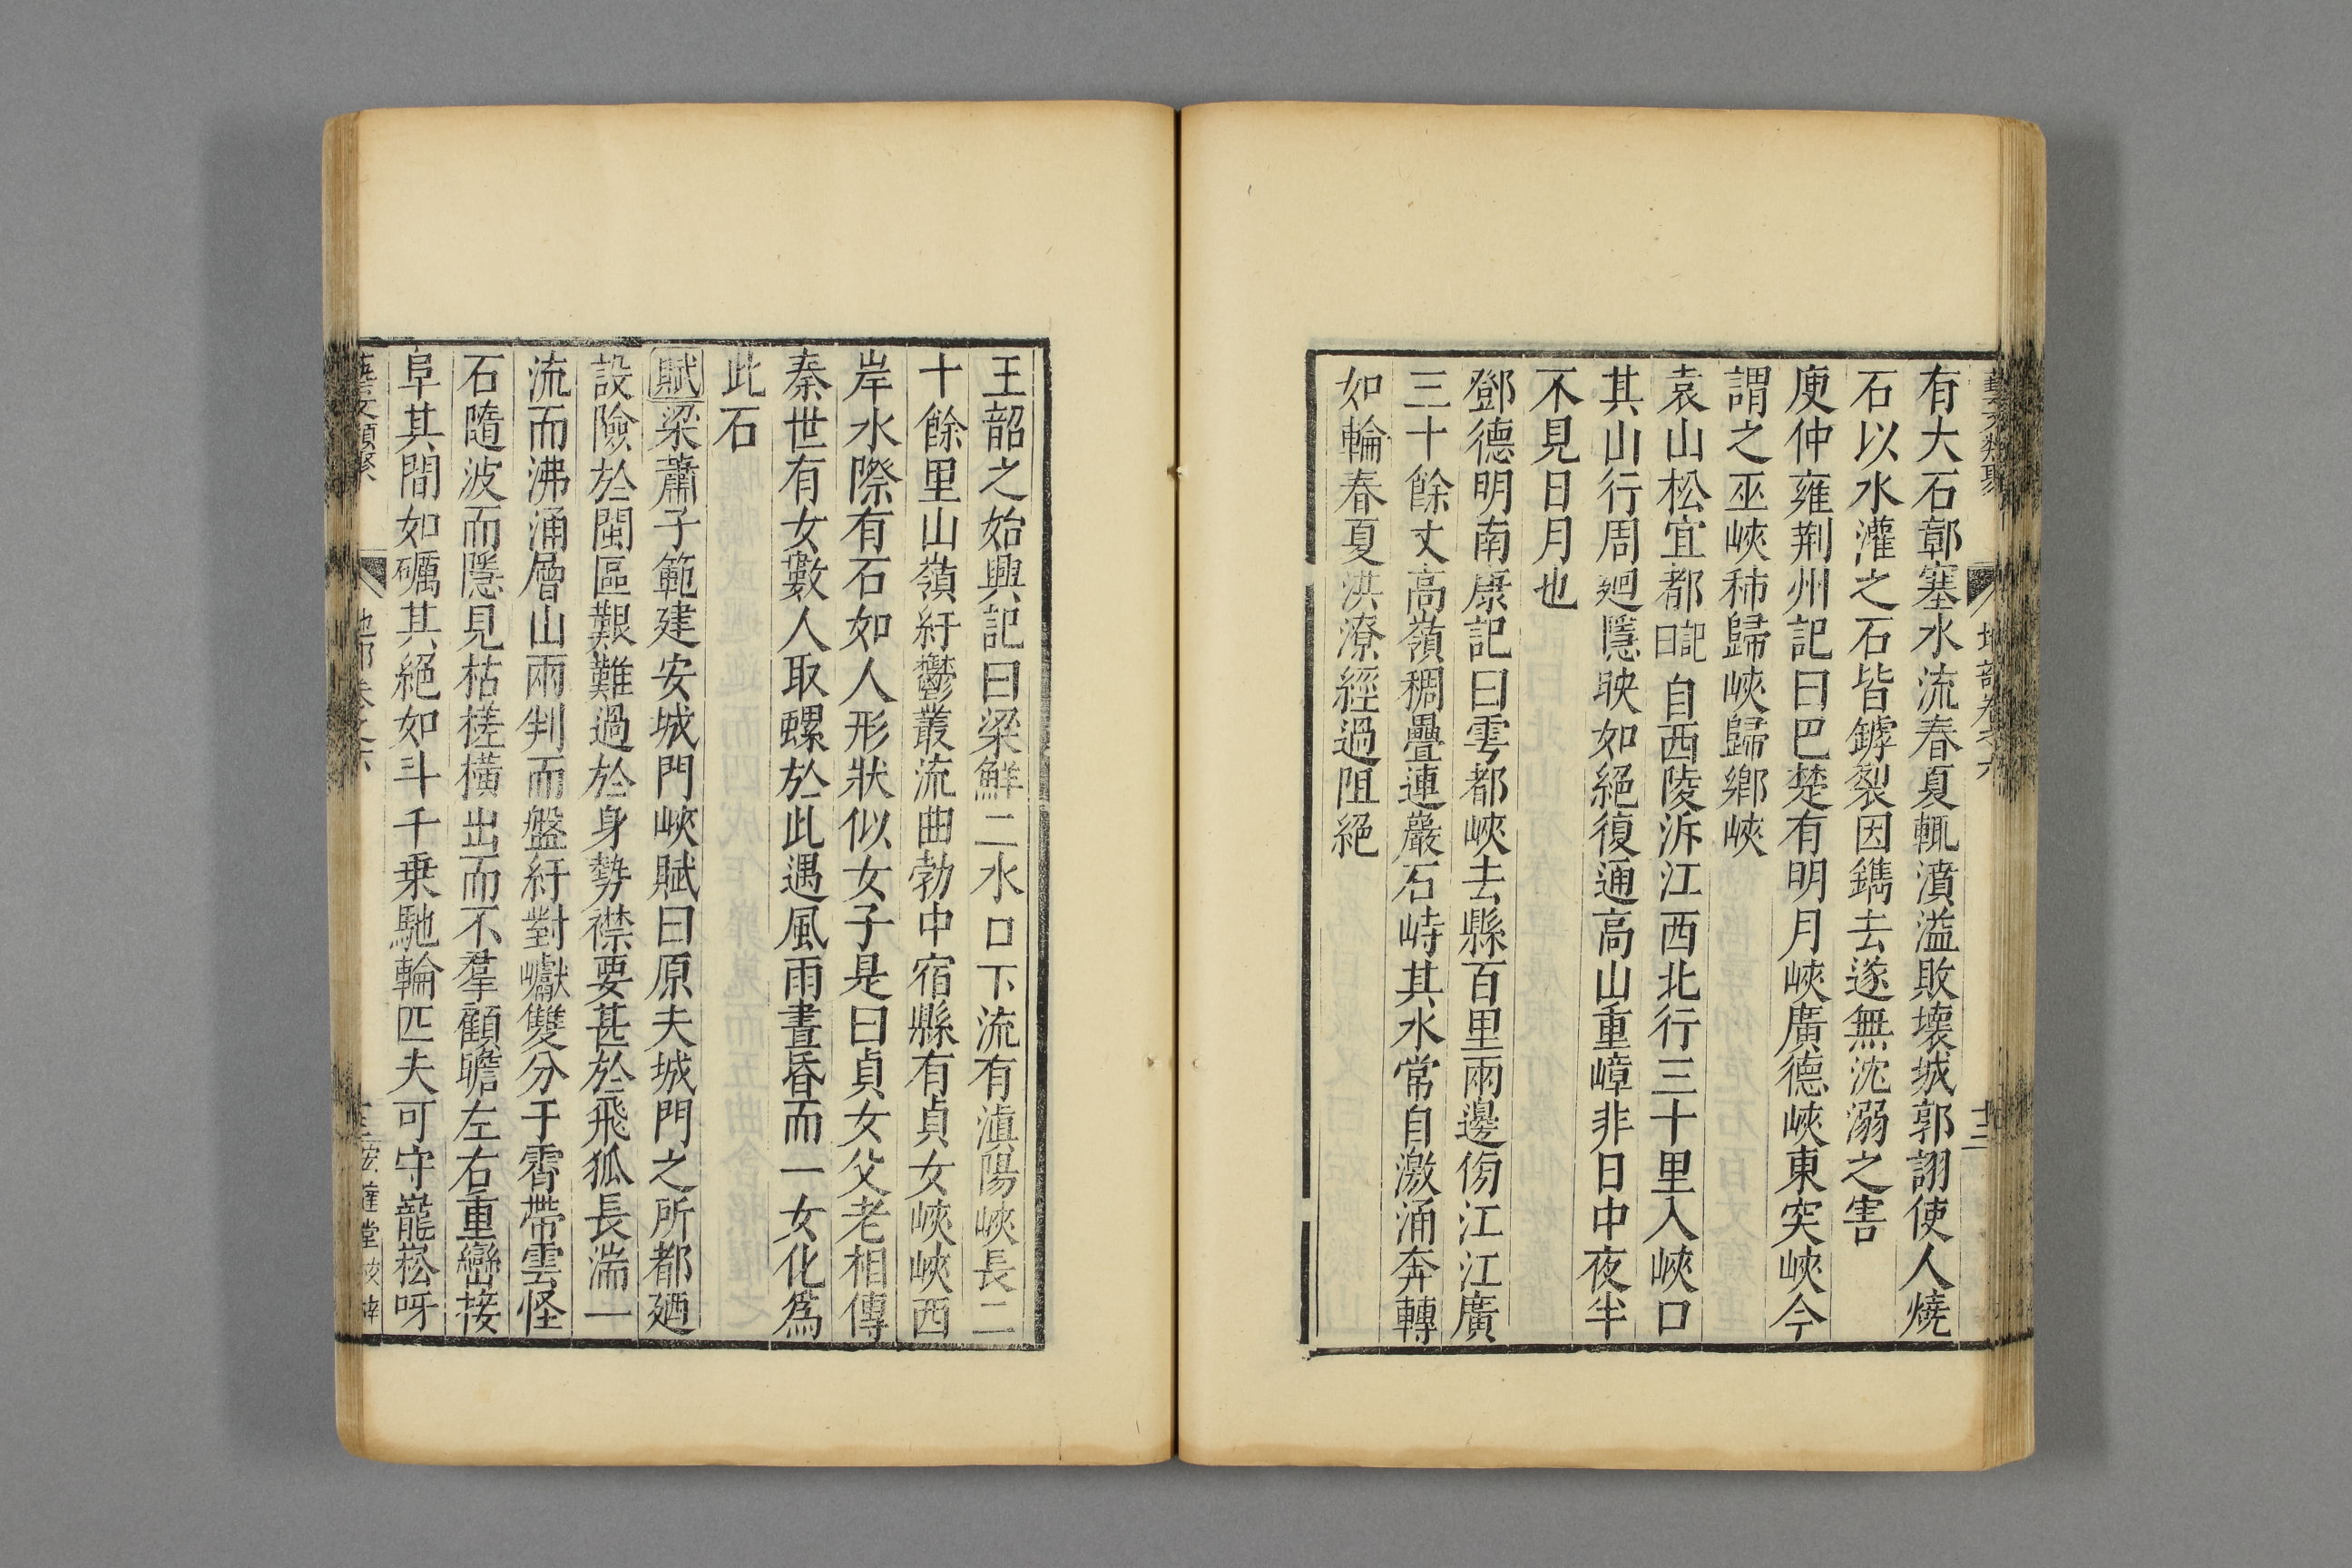 有大石鄣塞水流春夏輒濆溢敗壞城郭詡使人燒
石以水灌之石皆罅裂因鐫去遂無沈溺之害
庾仲雍荆州記曰巴楚有明月峽廣德峽東突峽今
謂之巫峽秭歸峽歸鄉峽
袁山松宜都記曰自西陵泝江西北行三十里入峽口
其山行周廻隱映如絕復通高山重嶂非日中夜半
不見日月也
鄧德明南康記曰雩都峽去縣百里兩邊傍江江廣
三十餘丈高嶺稠疊連巖石峙其水常自激涌奔轉
如輪春夏洪潦經過阻絕
王韶之始興記曰梁鮮二水口下流有滇陽峽長二
十餘里山嶺紆鬱叢流曲勃中宿縣有貞女峽峽西
岸水際有石如人形狀似女子是曰貞女父老相傳
秦世有女數人取螺於此遇風雨晝昏而一女化爲
此石
賦梁蕭子範建安城門峽賦曰原夫城門之所都廼
設險於閩區艱難過於身勢襟要甚於飛狐長湍一
流而沸涌層山兩判而盤紆對巘雙分于霄帶雲怪
石隨波而隱見枯槎橫出而不羣顧瞻左右重巒接
阜其間如礪其絕如斗千乗馳輪匹夫可守巃嵸呀